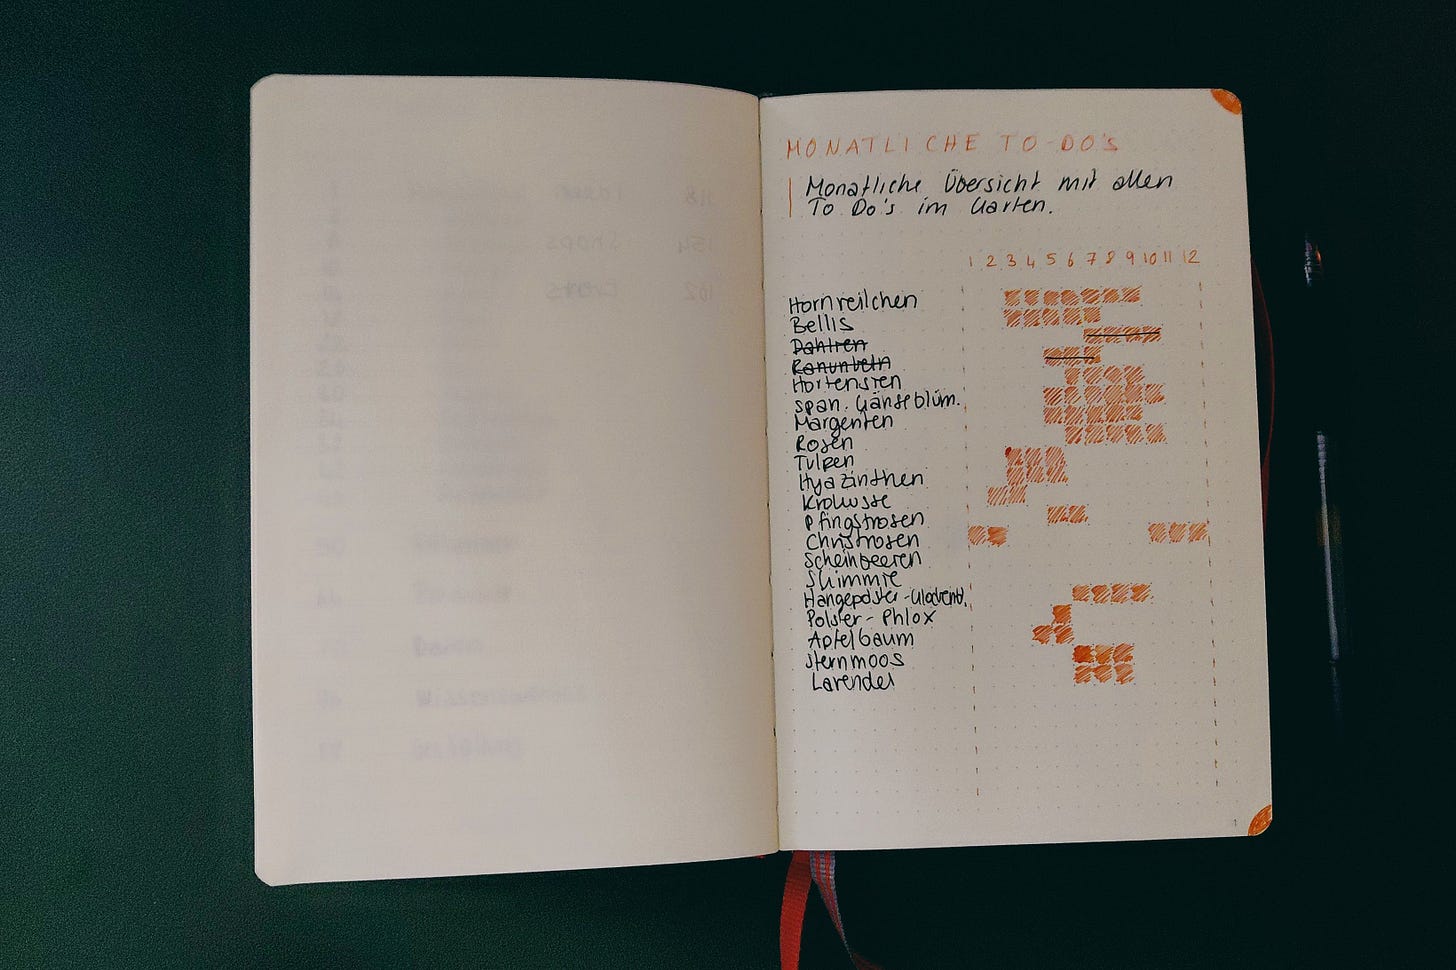 MONATLICHE TO-DO's
Monatliche Übersicht mit allen
To Do's im Garten.
1 2 3 4 5 6 7 8 9 10 11 12
Hornveilchen
Bellis
Dahlien
Ranunkeln
Hortensien
span. Gänseblüm.
Margeriten
Rosen
Tulpen
Hyazinthen
Krokusse
Pfingstrosen
Christrosen
Scheinbeeren
Skimmie
Hängepolster-Glockenbl.
Polster-Phlox
Apfelbaum
Sternmoos
Lavendel
1